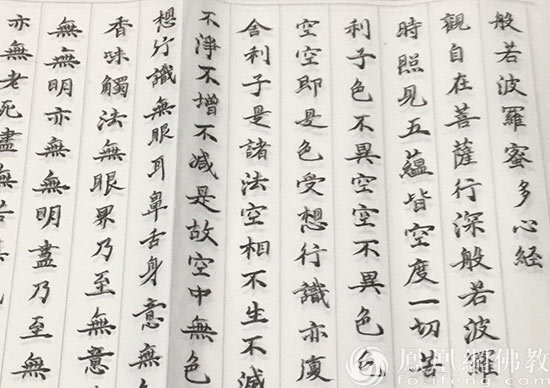 般若波羅蜜多心經
觀自在菩薩行深般若波羅
時照見五蘊皆空度一切苦
利子色不異空空不異色色
空空即是色受想行識亦復
舍利子是諸法空相不生不滅
不淨不增不減是故空中無色
想行識無眼耳鼻舌身意無
香味觸法無眼界乃至無意
無無明亦無無明盡乃至無
亦無老死盡無苦集
鳳凰網佛教
fo.ifeng.com